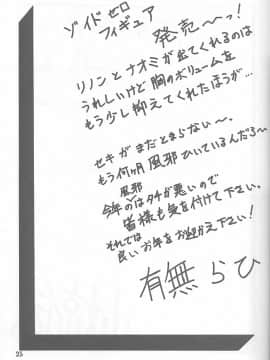 ゾイドゼロ
フィギュア
発売〜〜っ!
リノンとナオミが出てくれるのは
うれしいけど胸のボリュームを
もう少し抑えてくれたほうが…
セキがまだとまらない〜。
もう何ヶ月風邪ひいているんだろ〜
風邪
今年のはタチが悪いので
皆様も気を付けて下さい。
それでは
良いお年をお迎え下さい!
有無らひ
25